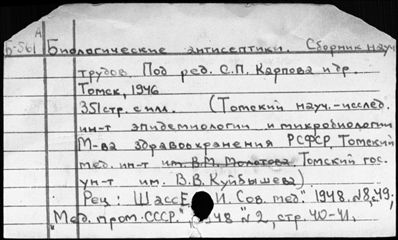 А
Б-561 Биологические антисептики. Сборник науч.
трудов. Под ред. С.П. Карпова и др.
Томск, 1946
351 стр. с илл. (Томский науч.-исслед.
ин-т эпидемиологии и микробиологии
М-ва здравоохранения РСФСР, Томский
мед. ин-т им. В.М. Молотова Томский гос.
ун-т им. В.В. Куйбышева)
Рец: Шасс Е. И. Сов. мед." 1948. №8, с.49;
"Мед. пром. СССР." 48 №2, стр. 40-41.